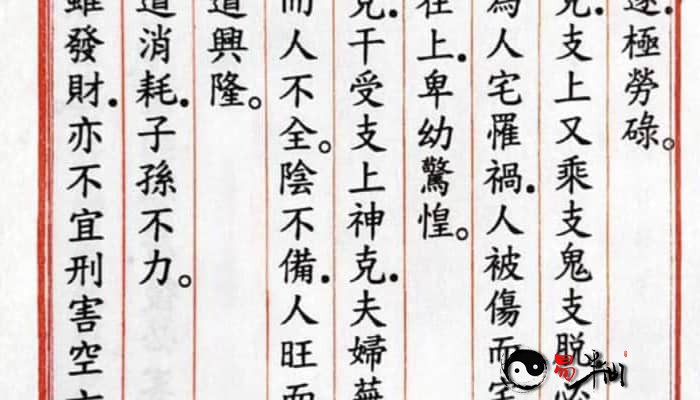 遂.極勞碌。
克.支上又乘支鬼支脫必
為人宅罹禍.人被傷而宅
在上.卑幼驚惶。
克.干受支上神克.夫婦蕪
而人不全。陰不備.人旺而
道興隆。
道消耗.子孫不力。
雖發財.亦不宜刑害空
易